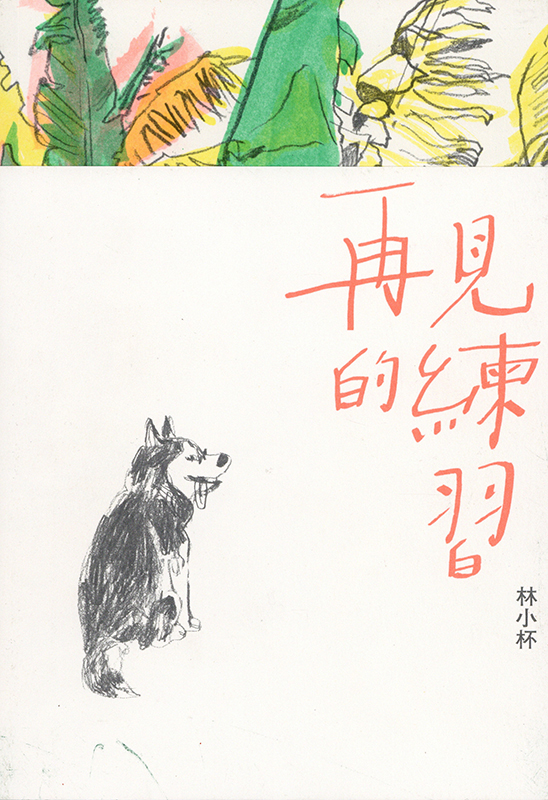 再見
的練習
林小杯